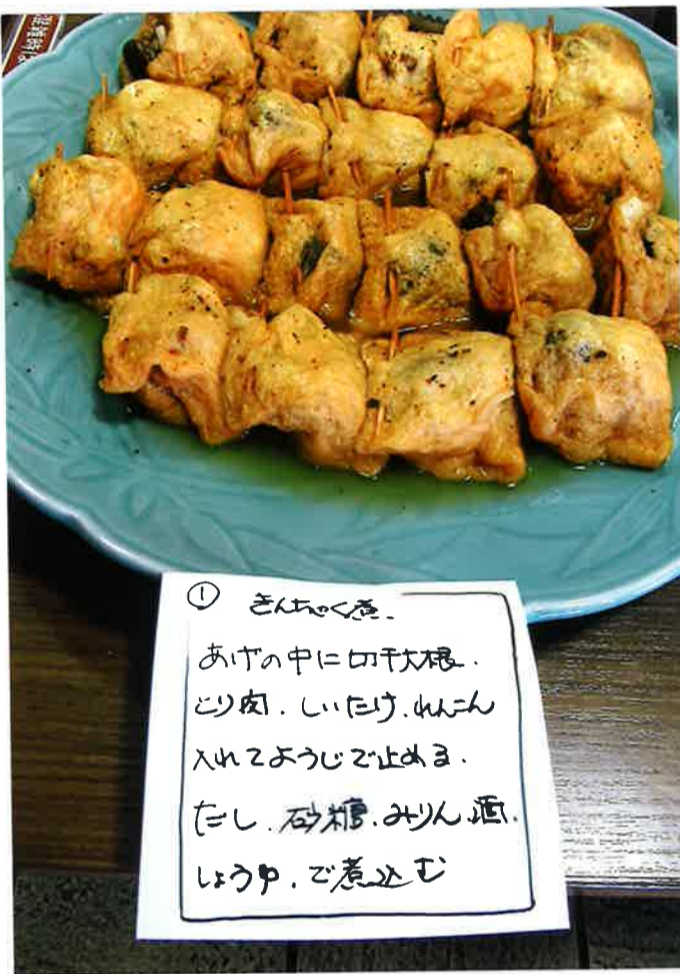 ① きんちゃく煮.
あげの中に切干大根.
とり肉.しいたけ.れんこん
入れてようじで止める.
だし.砂糖.みりん.酒.
しょうゆ.で煮込む